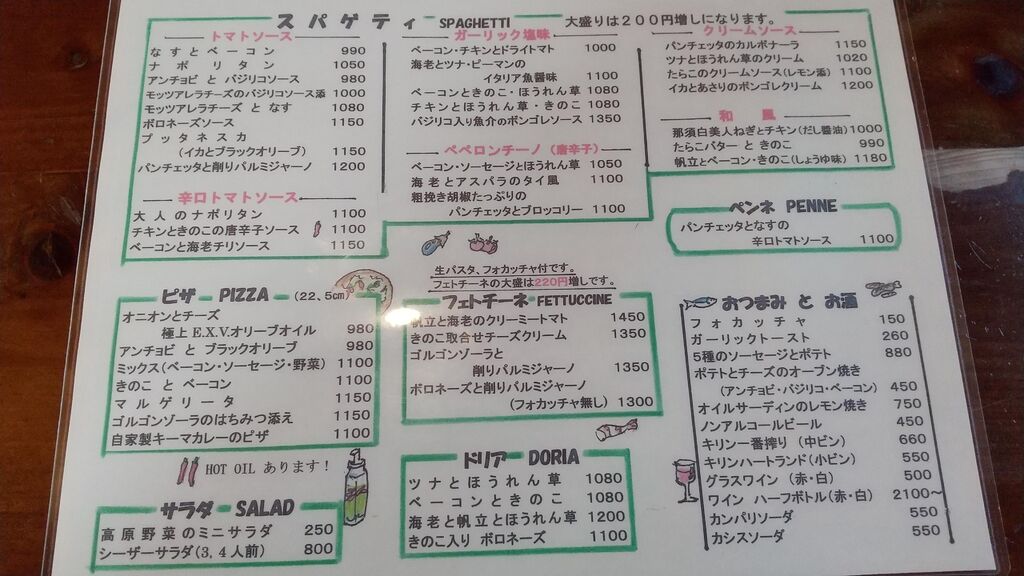 スパゲティ SPAGHETTI 大盛りは200円増しになります。
トマトソース
なすとベーコン 990
ナポリタン 1050
アンチョビ と バジリコソース 980
モッツアレラチーズのバジリコソース添 1000
モッツアレラチーズ と なす 1080
ボロネーズソース 1150
プッタネスカ
(イカとブラックオリーブ) 1150
パンチェッタと削りパルミジャーノ 1200
辛口トマトソース
大人のナポリタン 1100
チキンときのこの唐辛子ソース 1100
ベーコンと海老チリソース 1150
ガーリック塩味
ベーコン・チキンとドライトマト 1000
海老とツナ・ピーマンの
イタリア魚醤味 1100
ベーコンときのこ・ほうれん草 1080
チキンとほうれん草・きのこ 1080
バジリコ入り魚介のボンゴレソース 1350
ペペロンチーノ (唐辛子)
ベーコン・ソーセージとほうれん草 1050
海老とアスパラのタイ風 1100
粗挽き胡椒たっぷりの
パンチェッタとブロッコリー 1100
クリームソース
パンチェッタのカルボナーラ 1150
ツナとほうれん草のクリーム 1020
たらこのクリームソース(レモン添) 1100
イカとあさりのボンゴレクリーム 1200
和風
那須白美人ねぎとチキン(だし醤油) 1000
たらこバター と きのこ 990
帆立とベーコン・きのこ(しょうゆ味) 1180
ペンネ PENNE
パンチェッタとなすの
辛口トマトソース 1100
生パスタ、フォカッチャ付です。
フェトチーネの大盛は220円増しです。
ピザ PIZZA (22、5㎝)
オニオンとチーズ
極上E.X.V.オリーブオイル 980
アンチョビ と ブラックオリーブ 980
ミックス(ベーコン・ソーセージ・野菜) 1100
きのこ と ベーコン 1100
マルゲリータ 1150
ゴルゴンゾーラのはちみつ添え 1150
自家製キーマカレーのピザ 1100
HOT OIL あります!
サラダ SALAD
高原野菜のミニサラダ 250
シーザーサラダ(3,4人前) 800
フェトチーネ FETTUCCINE
帆立と海老のクリーミートマト 1450
きのこ取合せチーズクリーム 1350
ゴルゴンゾーラと
削りパルミジャーノ 1350
ボロネーズと削りパルミジャーノ
(フォカッチャ無し) 1300
ドリア DORIA
ツナとほうれん草 1080
ベーコンときのこ 1080
海老と帆立とほうれん草 1200
きのこ入り ボロネーズ 1100
おつまみ と お酒
フォカッチャ 150
ガーリックトースト 260
5種のソーセージとポテト 880
ポテトとチーズのオーブン焼き
(アンチョビ・バジリコ・ベーコン) 450
オイルサーディンのレモン焼き 750
ノンアルコールビール 450
キリン一番搾り (中ビン) 660
キリンハートランド(小ビン) 550
グラスワイン (赤・白) 500
ワイン ハーフボトル(赤・白) 2100~
カンパリソーダ 550
カシスソーダ 550